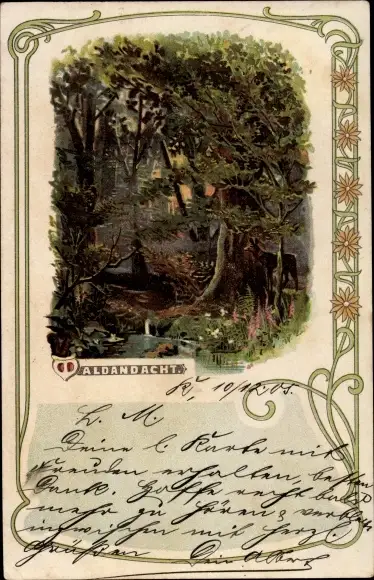 WALDANDACHT.
10/12. 05.
L. M.
Deine l. Karte mit
Freuden erhalten, besten
Dank. Hoffe recht bald
mehr zu hören & verbleibe
inzwischen mit herzl.
Grüßen
Dein